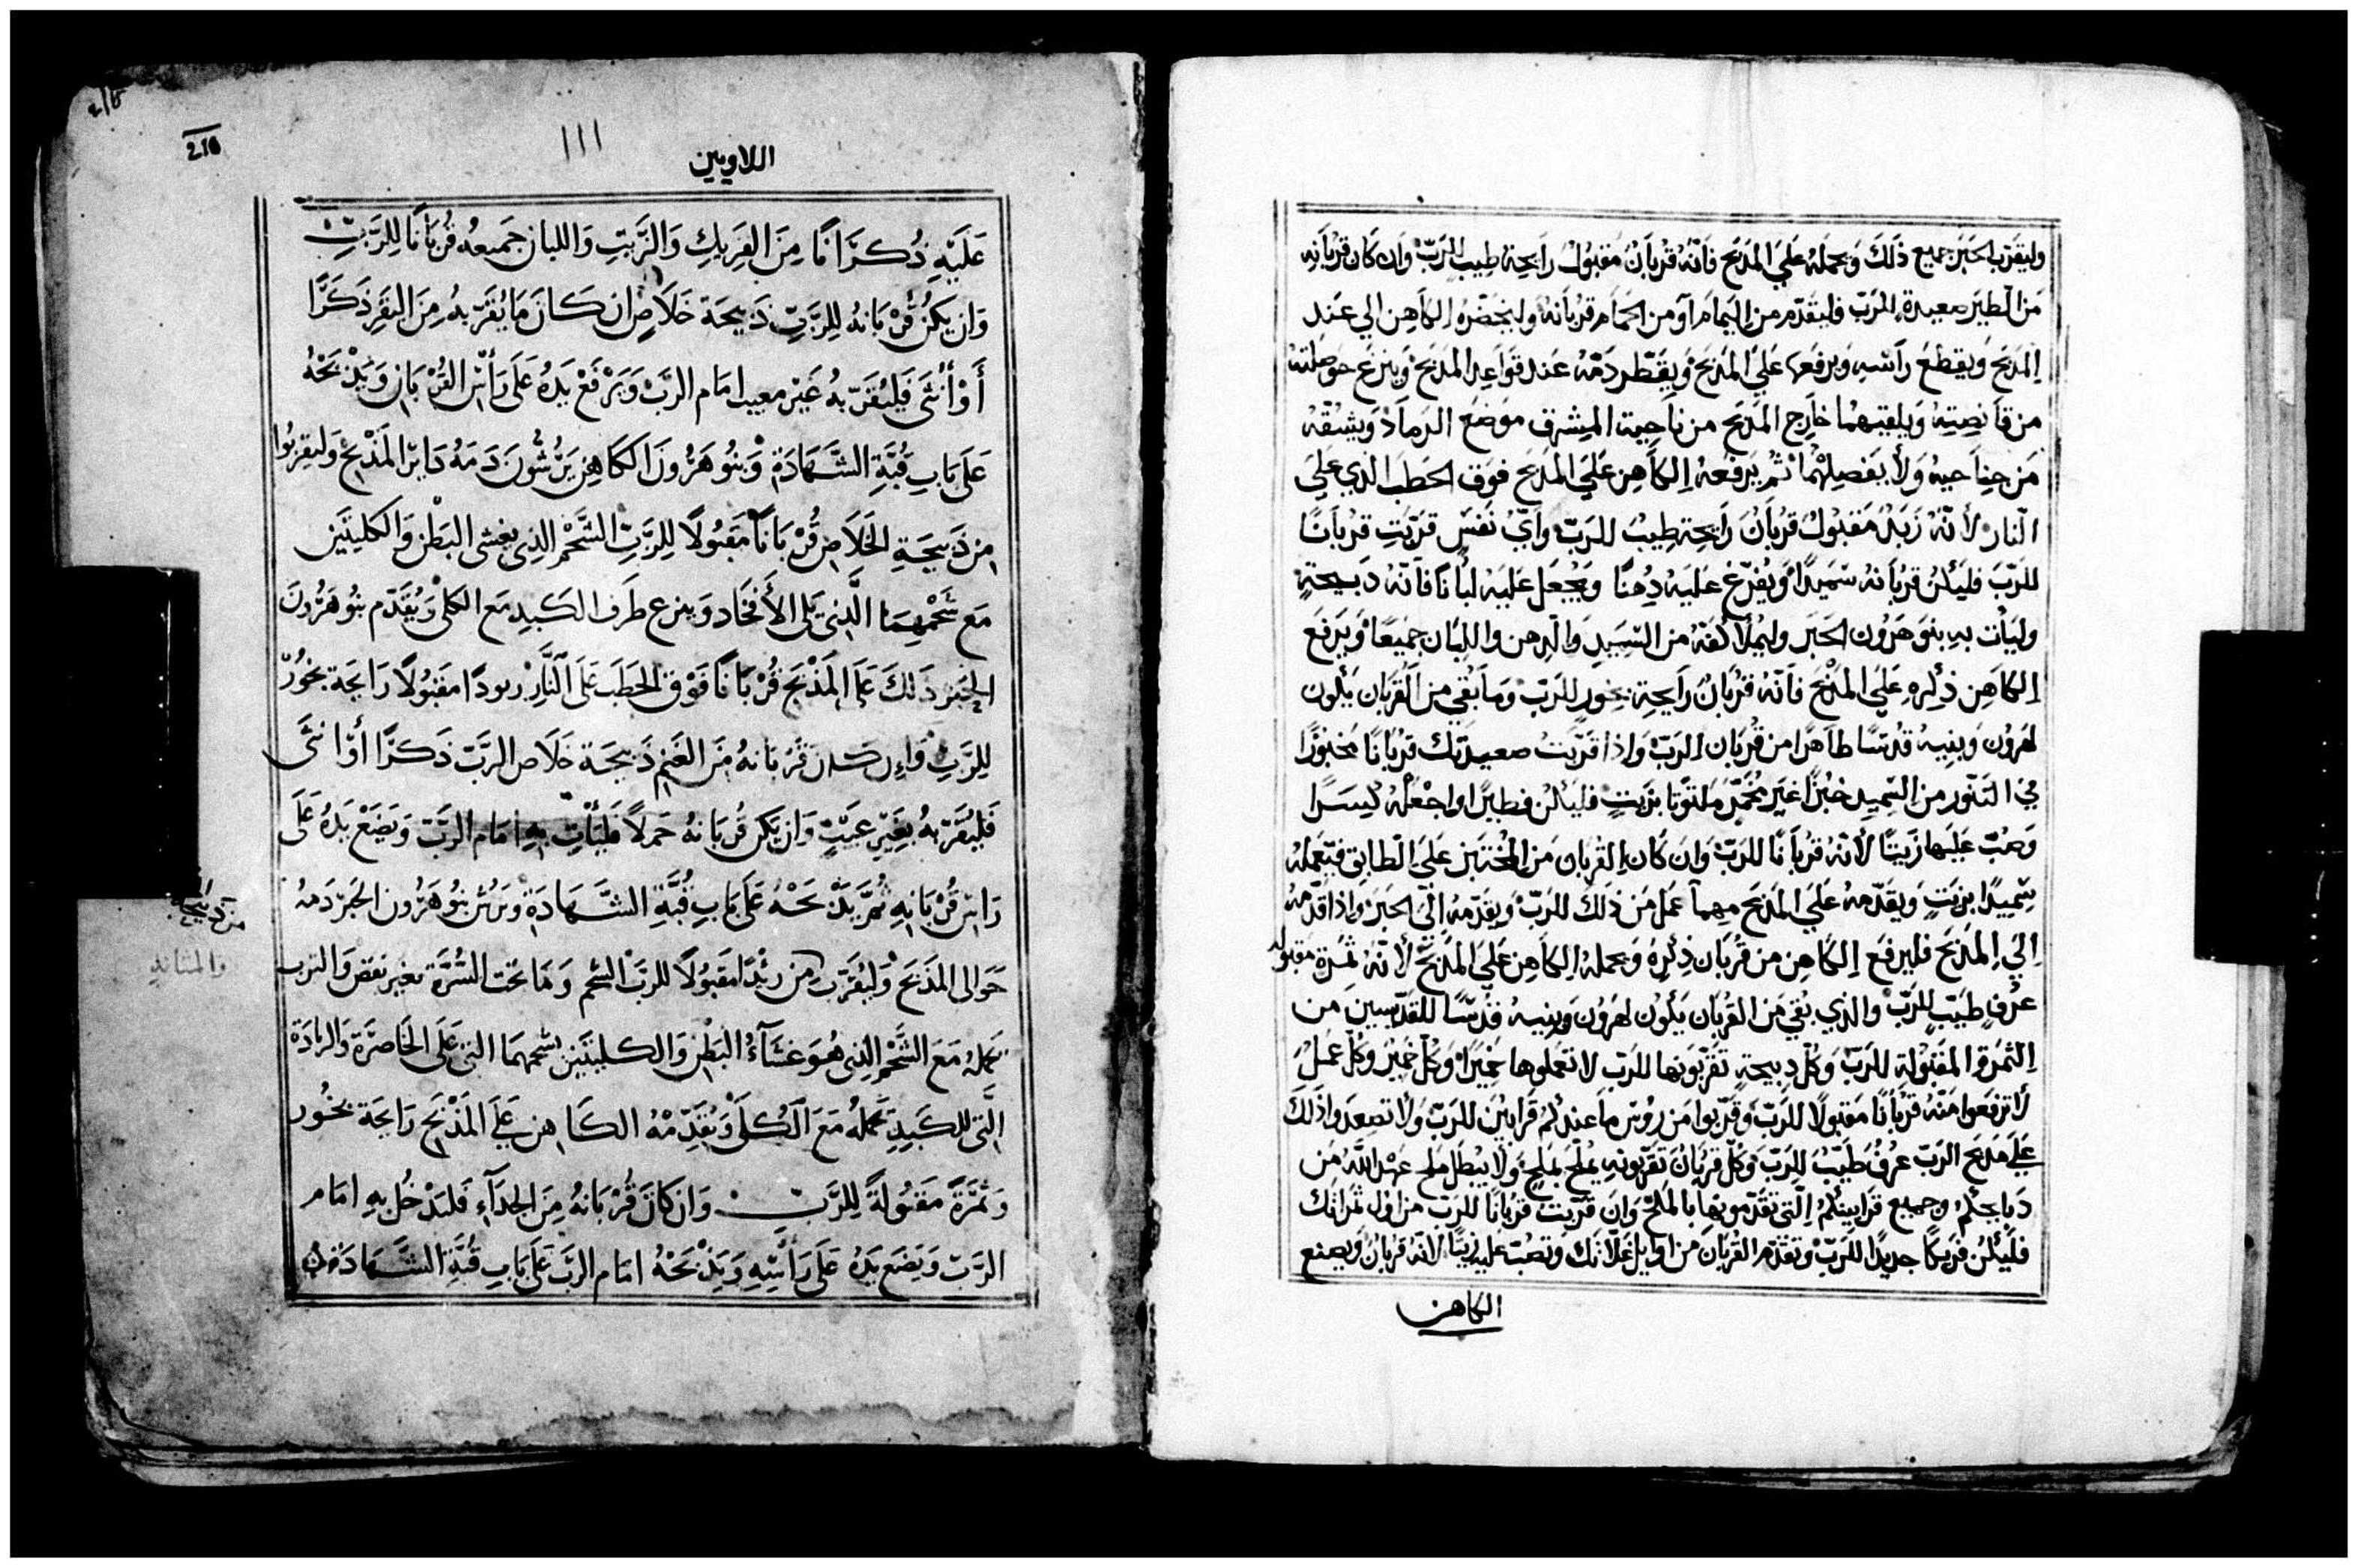 وليقرب الحبر جميع ذلك ويحمله علي المذبح فانه قربان مقبول رايحة طيب للرب وان كان قربانه
من الطير صعيدة للرب فليقدم من اليمام او من الحمام قربانه وليحضره الكاهن الي عند
المذبح ويقطع راسه ويرفعها علي المذبح ويقطر دمه عند قواعد المذبح وينزع حوصلته
من قانصيته ويلقيهما خارج المذبح من ناحية المشرق موضع الرماد ويشقه
من جناحيه ولا يفصلهما ثم يرفعه الكاهن علي المذبح فوق الحطب الذي علي
النار لانه زبد مقبول قربان رايحة طيب للرب واي نفس قربت قربانا
للرب فليكن قربانه سميدا ويفرغ عليه دهنا ويجعل عليه لبانا فانه دبيحة
وليات به بنو هرون الحبر وليملا كفه من السميد والدهن واللبان جميعا ويرفع
الكاهن ذكره علي المذبح فانه قربان رايحة بخور للرب وما بقي من القربان يكون
لهرون وبنيه قدسا طاهرا من قربان الرب واذا قربت صعيدتك قربانا مخبوزا
في التنور من السميد خبزا غير مخمر ملتوتا بزيت فليكن فطيرا واجعله كسرا
وصب عليها زيتا لانه قربانا للرب وان كان القربان من المختبز علي الطابق فتعمله
سميدا بزيت ويقدمه علي المذبح مهما عمل من ذلك للرب ويقدمه الي الحبر واذا قدمه
الي المذبح فليرفع الكاهن من قربان ذكره ويحمله الكاهن علي المذبح لانه ثمرة مقبوله
عرف طيب للرب والذي بقي من القربان يكون لهرون وبنيه قدسا للقديسين من
الثمرة المقبولة للرب وكل دبيحة تقربونها للرب لا تعملوها خميرا وكل خمير وكل عسل
لا ترفعوا منه قربانا مقبولا للرب وقربوا من روس ما عندكم قرابين للرب ولا تصعدوا ذلك
علي مذبح الرب عرف طيب للرب وكل قربان تقربونه يملح بملح ولا يبطل ملح عهد الله من
دبايحكم وجميع قرابينكم التي تقدمونها بالملح وان قربت قربانا للرب من اول ثمراتك
فليكن فريكا جديدا للرب وتقدم القربان من اوايل غلاتك وتصب عليه زيتا لانه قربان ويصنع
الكاهن
اللاويين
١١١
210
عَلَيْهِ ذُكرَانًا مِنَ الفَرِيكِ وَالزَّيتِ وَاللبان جَميعه قُربَانًا لِلرَّبِّ
وَان يَكُنْ قُرْبَانهُ لِلرَّبِّ ذَبيحَة خَلَاصٍ ان كَانَ مَا يُقَرّبهُ مِنَ البَقَرِ ذَكَرًا
أَوْ أُنْثَى فَليُقَرّبهُ غَيْر معيب امَام الرَّبّ وَيَرْفَعْ يَدهُ عَلَى رَأْسِ القُرْبَانِ وَيَذْبَحْهُ
عَلَى بَابِ قُبَّةِ الشَّهَادَةِ وَبَنُو هَرُونَ الكَاهِن يَرُشُّونَ دَمَهُ دَايرَ المَذْبَحْ وَليقربُوا
مِن ذَبيحَةِ الخَلَاصِ قُرْبَانًا مَقْبُولًا لِلرَّبِّ الشَّحْم الذِي يغشى البَطْن وَالكليتَين
مَعَ شَحْمِهِمَا الَّذِي يَلى الأَفخَاد وَينزع طَرَف الكَبِد مَع الكلى وَيُقَدّم بَنُو هَرُونَ
الحَبْر ذَلكَ عَلَى المَذْبَحْ قُرْبَانًا فَوْقَ الحَطَب عَلَى النَّارِ مَقبُولًا رَايحَة بخُورٍ
لِلرَّبِّ وَإن كَانَ قُرْبَانهُ مِنَ الغَنَم ذَبيحَة خَلَاص الرَّبّ ذَكَرًا أَوْ انثَى
فَليُقَرّبهُ بغَيْرِ عَيْبٍ وَان يَكن قُربَانهُ حَملًا فَليَأتِ بِهِ امَام الرَّبّ وَيَضَعْ يَدهُ عَلَى
رَاسِ قُرْبَانِهِ ثُمَّ يَذْبَحْهُ عَلَى بَابِ قُبَّةِ الشَّهَادَةِ وَيَرُش بَنُو هَرُون الحَبْر دَمهُ
حَوَالى المَذبَحْ وَليُقَرّب مِن مَقبُولًا للرَّبّ الشحم وَمَا تحَت السُّرَّة بغير نقض وَالثرب
يَحملهُ مَعَ الشَّحْم الذِى هُوَ غشَآءُ البَطْنِ وَالكليتَين بشحمهمَا التي عَلَى الخَاصرَة وَالزيَادَة
الَّتِى للكَبِدِ يَحملهُ مَعَ الكُلَى وَيُقَدّمْهُ الكَاهِن عَلَى المَذْبَحِ رَايحَة بخُور
وَثمَرَةً مَقبُولَةً لِلرَّبِّ وَان كَانَ قُرْبَانهُ مِنَ الجدَآءِ فَليَدْخُل بِهِ امَام
الرَّبّ وَيَضَع يَدهُ عَلَى رَأْسِهِ وَيَذْبَحْهُ امَام الرَّبّ عَلَى بَابِ قُبَّةِ الشَّهَادَةِ
من ذبيحة